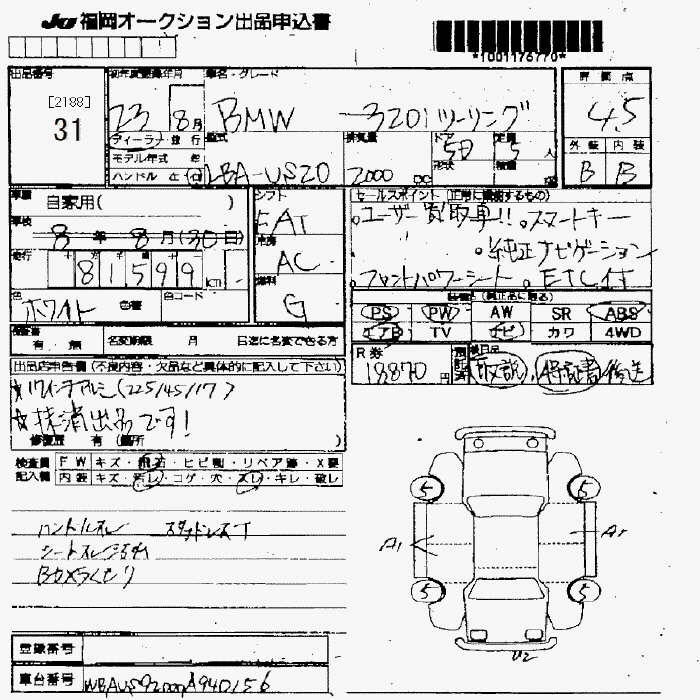 JU 福岡オークション出品申込書
*1001176770*
出品番号 初年度登録年月 車名・グレード 評価点
[2188]
31
23 8月 BMW 320iツーリング 4.5
ディーラー 並行 型式 排気量 ドア 定員 外装 内装
モデル年式 年
ハンドル 左 右 LBA-US20 2000 cc 形状 5D 積載 5人 B B
車歴 自家用( ) シフト FAT セールスポイント (正常に機能するもの)
車検 8年 8月(30日)
ユーザー買取車!! スマートキー
純正ナビゲーション
フロントパワーシート ETC付
走行 81599 Km 冷房 AC
燃料 G
色 ホワイト 色替 色コード
装備 (純正品に限る)
PS PW AW SR ABS
エアB TV ナビ カワ 4WD
有 無 名変期限 月 日迄に名変できる方
R券 18870円 後日品 取説 保証書 後送
出品店申告欄(不良内容・欠品など具体的に記入して下さい)
★ワインチアルミ(225/45/17)
★抹消出品です!
修復歴 有(箇所 )
検査員 FW キズ・飛石・ヒビ割・リペア跡・X要
記入欄 内装 キズ・汚レ・コゲ・穴・スレ・キレ・破レ
ハンドルスレ スタッドレスT
シートスレ汚れ
5 5
A1
5 5
U2
登録番号
車台番号